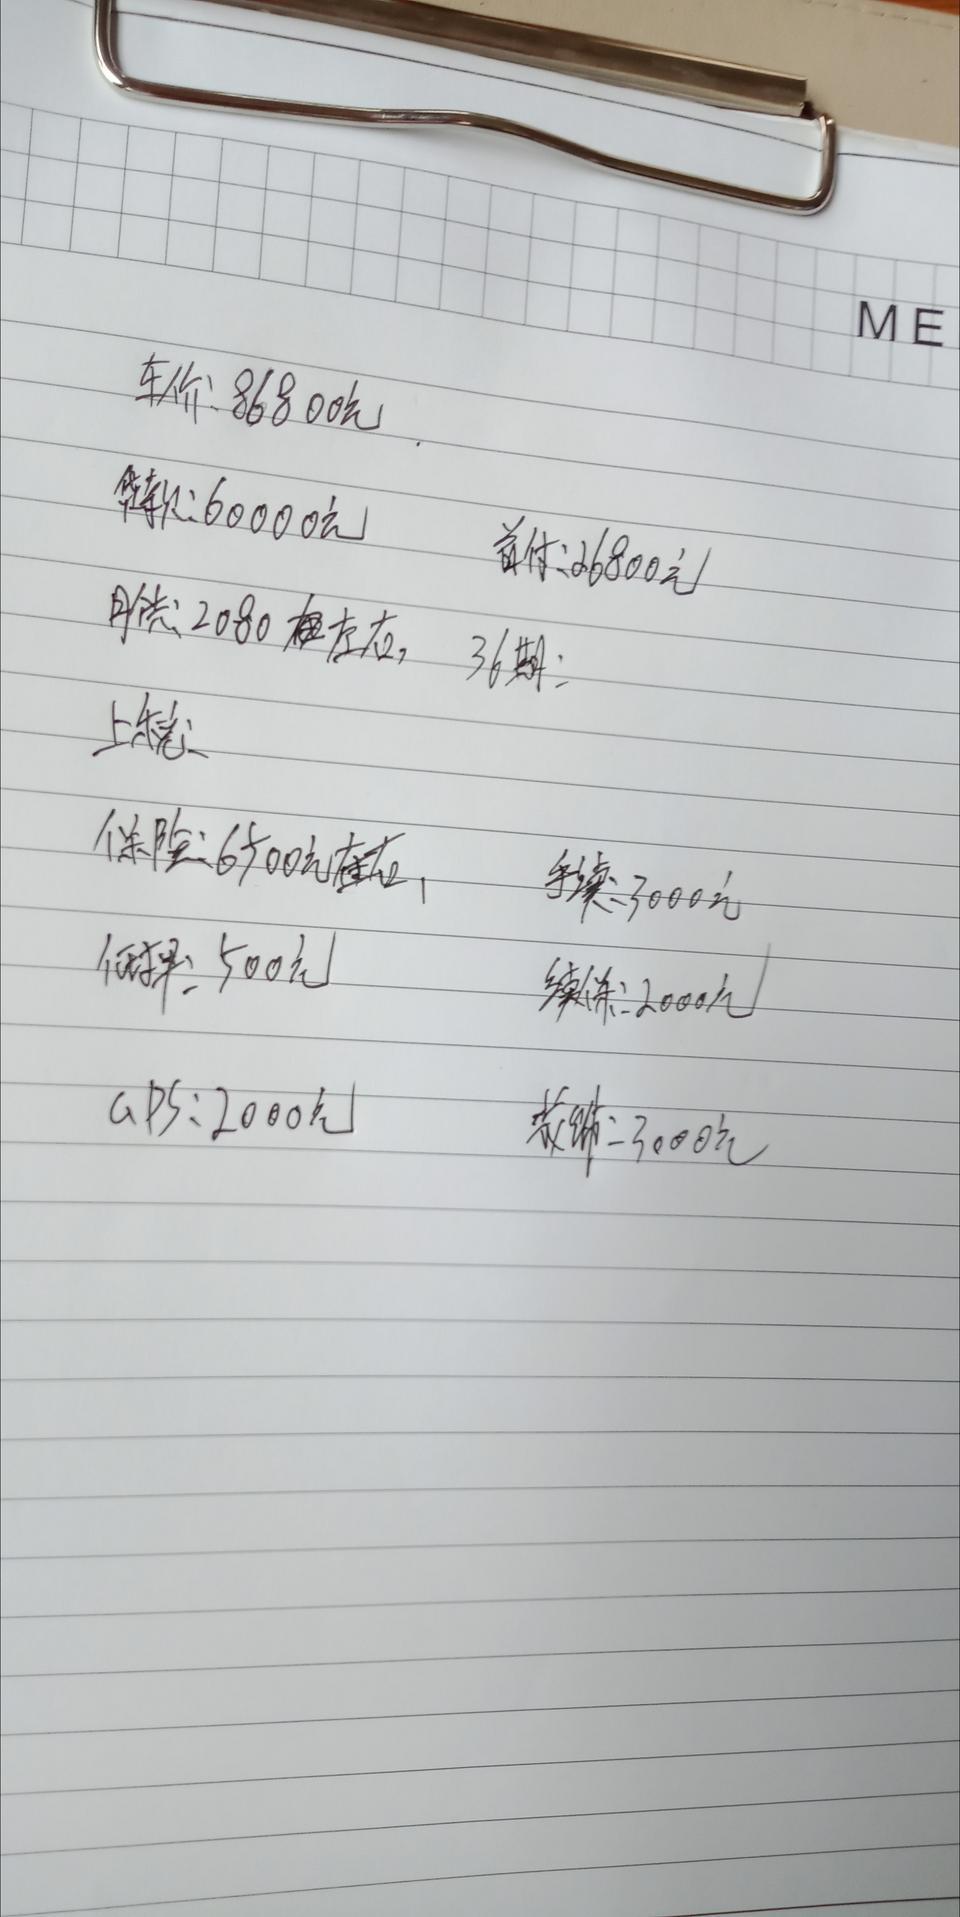 ME
车价：86800元
贷款：60000元 首付：26800元
月供：2080 左右， 36期：
上车
保险：6500元左右， 手续：3000元
500元 续保：2000元
GPS：2000元 装饰：3000元